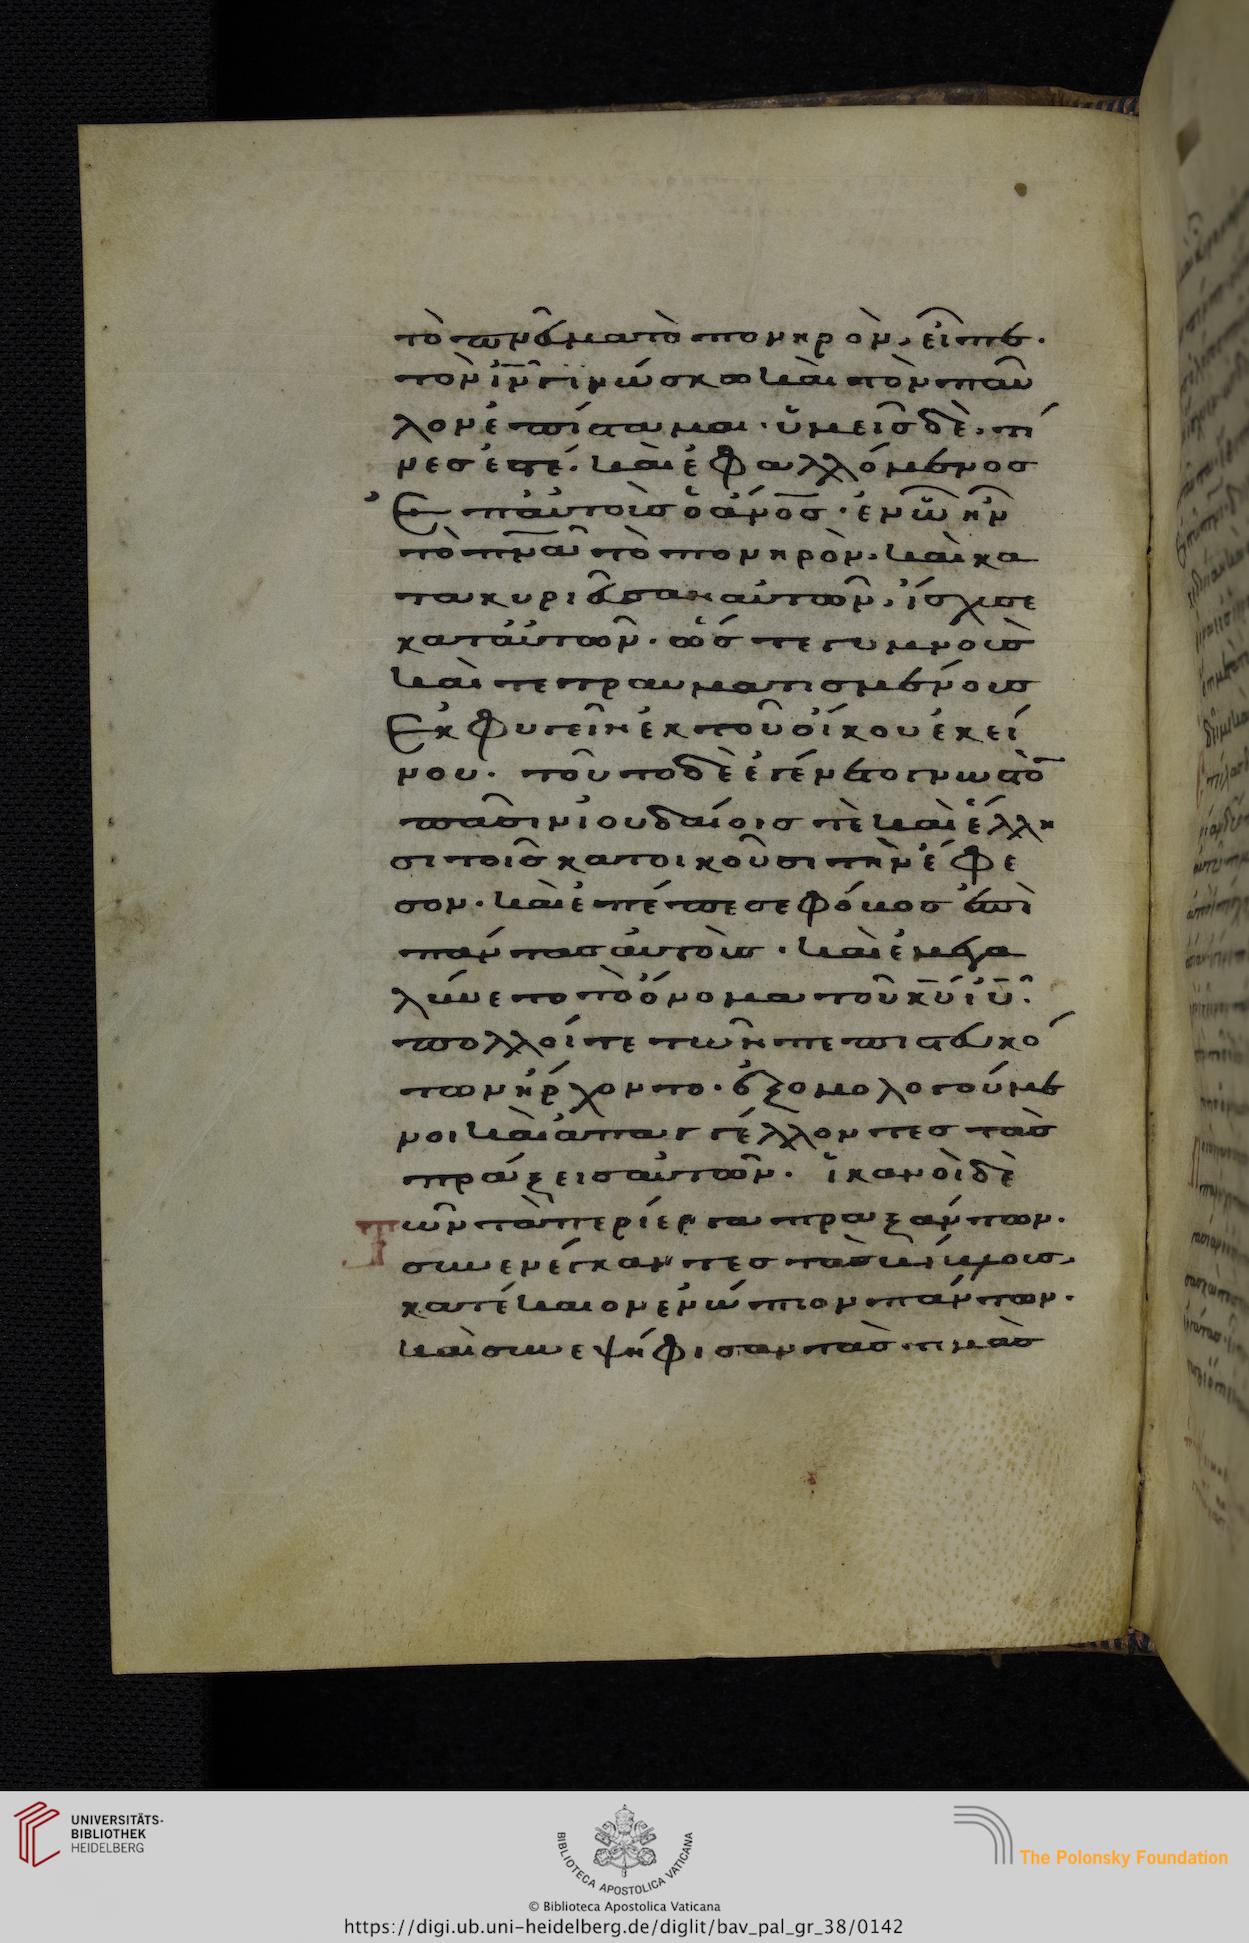 τὸ πνεῦμα τὸ πονηρὸν, εἶπεν.
τὸν ι̅ν̅ γινώσκω καὶ τὸν παῦ
λον ἐπίσταμαι· ὑμεῖς δὲ, τί
νες ἐστέ. καὶ ἐφαλλόμενος
ἐπ' αὐτοὺς ὁ α̅ν̅ο̅ς̅· ἐν ᾧ ἦν
τὸ π̅ν̅α̅ τὸ πονηρὸν. καὶ κα
τακυριεῦσαν αὐτῶν, ἴσχυσε
κατ' αὐτῶν· ὥστε γυμνοὺς
καὶ τετραυματισμένους
Ἐκφυγεῖν ἐκ τοῦ οἴκου ἐκεί
νου. τοῦτο δὲ ἐγένετο γνωστὸν
πᾶσιν ἰουδαίοις τὲ καὶ ἕλλη
σι τοῖς κατοικοῦσι τὴν ἔφε
σον. καὶ ἐπέπεσε φόβος ἐπὶ
πάντας αὐτοὺς· καὶ ἐμεγα
λύνετο τὸ ὄνομα τοῦ κ̅υ̅ ι̅υ̅.
πολλοί τε τῶν πεπιστευκό
των ἤρχοντο· ἐξομολογούμε
νοι καὶ ἀπαγγέλλοντες τὰς
πράξεις αὐτῶν. ἱκανοὶ δὲ
Τῶν τὰ περίεργα πραξάντων.
συνενέγκαντες τὰς βίβλους,
κατέκαιον ἐνώπιον πάντων.
καὶ συνεψήφισαν τὰς τιμὰς
UNIVERSITÄTS-
BIBLIOTHEK
HEIDELBERG
BIBLIOTECA APOSTOLICA VATICANA
The Polonsky Foundation
© Biblioteca Apostolica Vaticana
https://digi.ub.uni-heidelberg.de/diglit/bav_pal_gr_38/0142